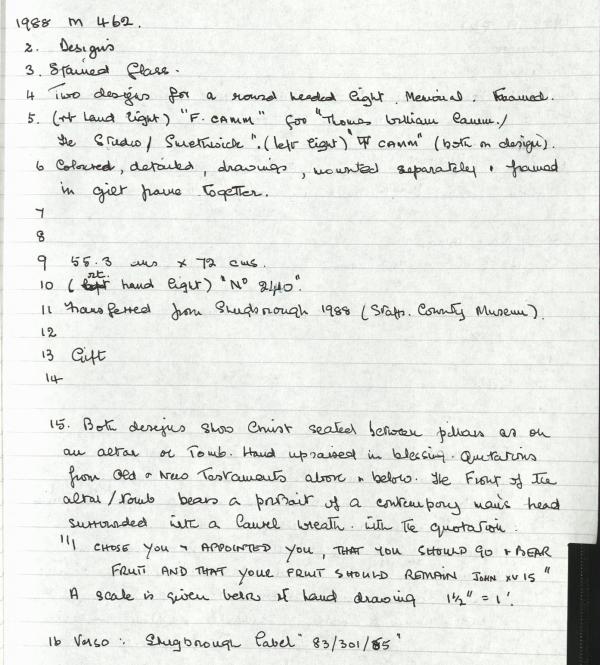 1988 M 462.
2. Designs
3. Stained Glass.
4 Two designs for a round headed light. Memorial. Framed.
5. (rt hand light) "F. CAMM" for "Thomas William Camm./
The Studio / Smethwick". (left light) "TW CAMM" (both on design).
6 Coloured, detailed, drawings, mounted separately & framed
in gilt frame together.
7
8
9 55.3 cms x 72 cms.
10 (rt. hand light) "No 2140".
11 Transferred from Shugborough 1988 (Staffs. County Museum).
12
13 Gift
14
15. Both designs show Christ seated between pillars as on
an altar or Tomb. Hand upraised in blessing. Quotations
from Old & New Testaments above & below. The Front of the
altar/tomb bears a portrait of a contempory man's head
surrounded with a laurel wreath. with the quotation.
"I CHOSE YOU & APPOINTED YOU, THAT YOU SHOULD GO & BEAR
FRUIT AND THAT YOUR FRUIT SHOULD REMAIN JOHN XV 15"
A scale is given below rt hand drawing 1½" = 1'.
16 Verso: Shugborough label "83/301/65"